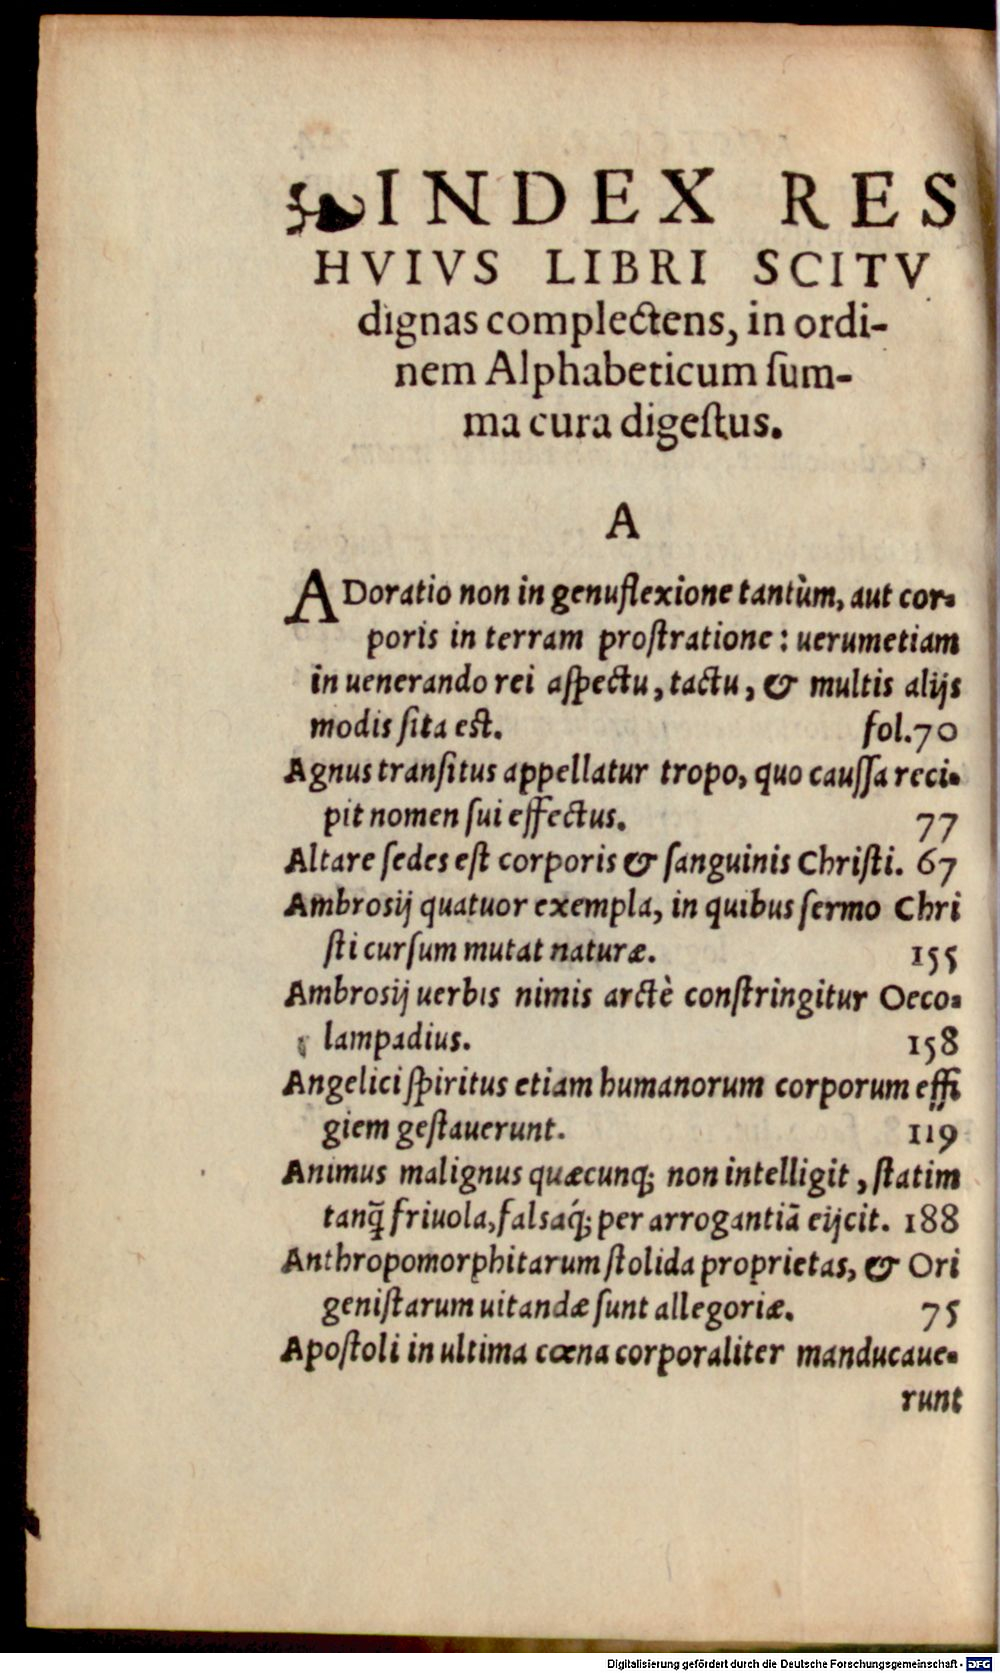 ❧INDEX RES
HVIVS LIBRI SCITV
dignas complectens, in ordi-
nem Alphabeticum ſum-
ma cura digeſtus.
A
ADoratio non in genuflexione tantùm, aut cor-
poris in terram proſtratione: uerumetiam
in uenerando rei aſpectu, tactu, & multis alijs
modis ſita eſt. fol.70
Agnus tranſitus appellatur tropo, quo cauſſa reci-
pit nomen ſui effectus. 77
Altare ſedes eſt corporis & ſanguinis Chriſti. 67
Ambroſij quatuor exempla, in quibus ſermo Chri
ſti curſum mutat naturæ. 155
Ambroſij uerbis nimis arctè conſtringitur Oeco-
lampadius. 158
Angelici ſpiritus etiam humanorum corporum effi
giem geſtauerunt. 119
Animus malignus quæcunq; non intelligit, ſtatim
tanq̃ friuola, falsaq́; per arrogantiã eijcit. 188
Anthropomorphitarum ſtolida proprietas, & Ori
geniſtarum uitandæ ſunt allegoriæ. 75
Apoſtoli in ultima cœna corporaliter manducaue-
runt
Digitalisierung gefördert durch die Deutsche Forschungsgemeinschaft - DFG